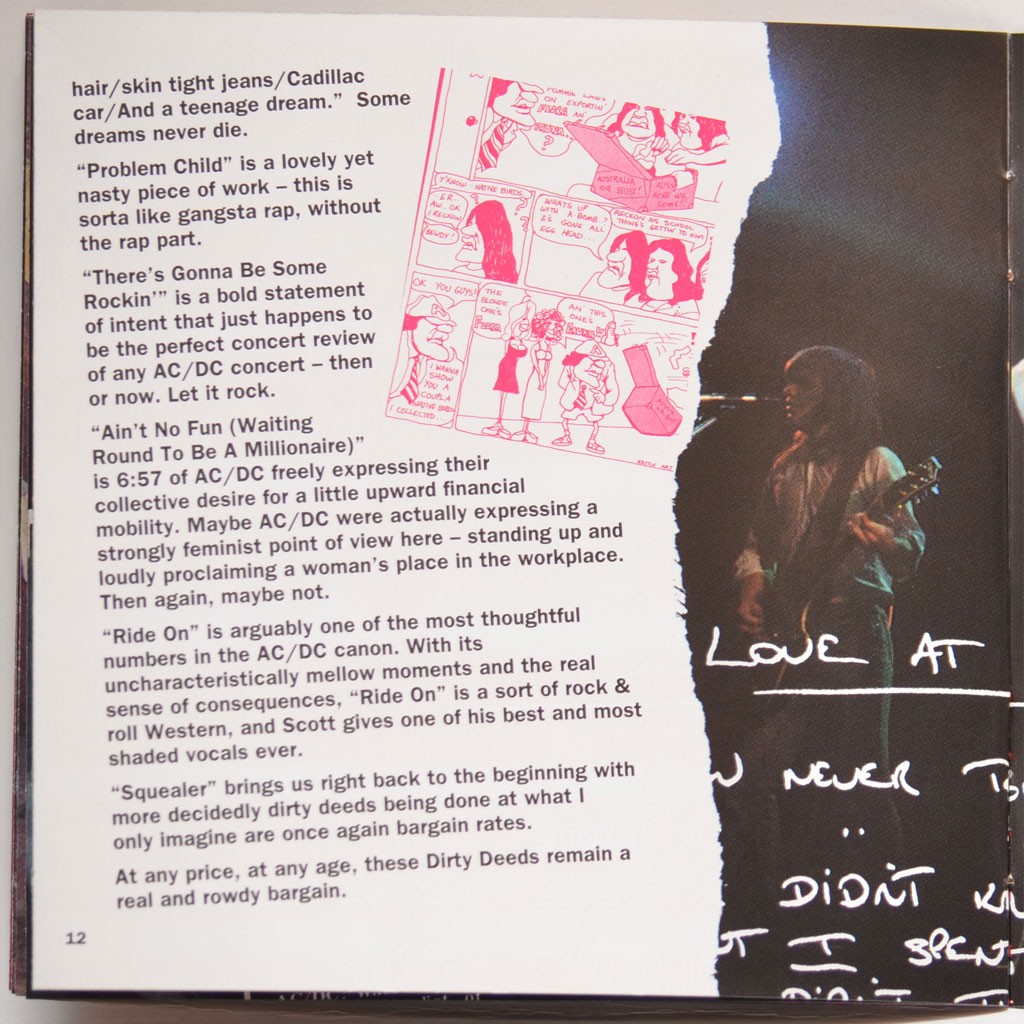 hair/skin tight jeans/Cadillac
car/And a teenage dream.” Some
dreams never die.
“Problem Child” is a lovely yet
nasty piece of work – this is
sorta like gangsta rap, without
the rap part.
“There’s Gonna Be Some
Rockin’” is a bold statement
of intent that just happens to
be the perfect concert review
of any AC/DC concert – then
or now. Let it rock.
“Ain’t No Fun (Waiting
Round To Be A Millionaire)”
is 6:57 of AC/DC freely expressing their
collective desire for a little upward financial
mobility. Maybe AC/DC were actually expressing a
strongly feminist point of view here – standing up and
loudly proclaiming a woman’s place in the workplace.
Then again, maybe not.
“Ride On” is arguably one of the most thoughtful
numbers in the AC/DC canon. With its
uncharacteristically mellow moments and the real
sense of consequences, “Ride On” is a sort of rock &
roll Western, and Scott gives one of his best and most
shaded vocals ever.
“Squealer” brings us right back to the beginning with
more decidedly dirty deeds being done at what I
only imagine are once again bargain rates.
At any price, at any age, these Dirty Deeds remain a
real and rowdy bargain.
12
ON EXPORTIN'
FLORA AN'
FAUNA..
?
AUSTRALIA
OR BUST!
Y'KNOW.. NATIVE BIRDS..
ER..
AW. OK
I RECKON
BEWDY!
WHATS UP
WITH A-BOMB..?
E'S GONE ALL
EGG HEAD...
RECKON HIS SCHOOL
THING'S GETTIN' TO HIM!
OK YOU GUYS!
I WANNA
SHOW
YOU A
COUPLA
NATIVE BIRDS
I COLLECTED...
THE
BLONDE
ONE'S
FLORA
AN' THIS
ONE'S
FAUNA
LOVE AT
NEVER
DIDN'T
I SPENT